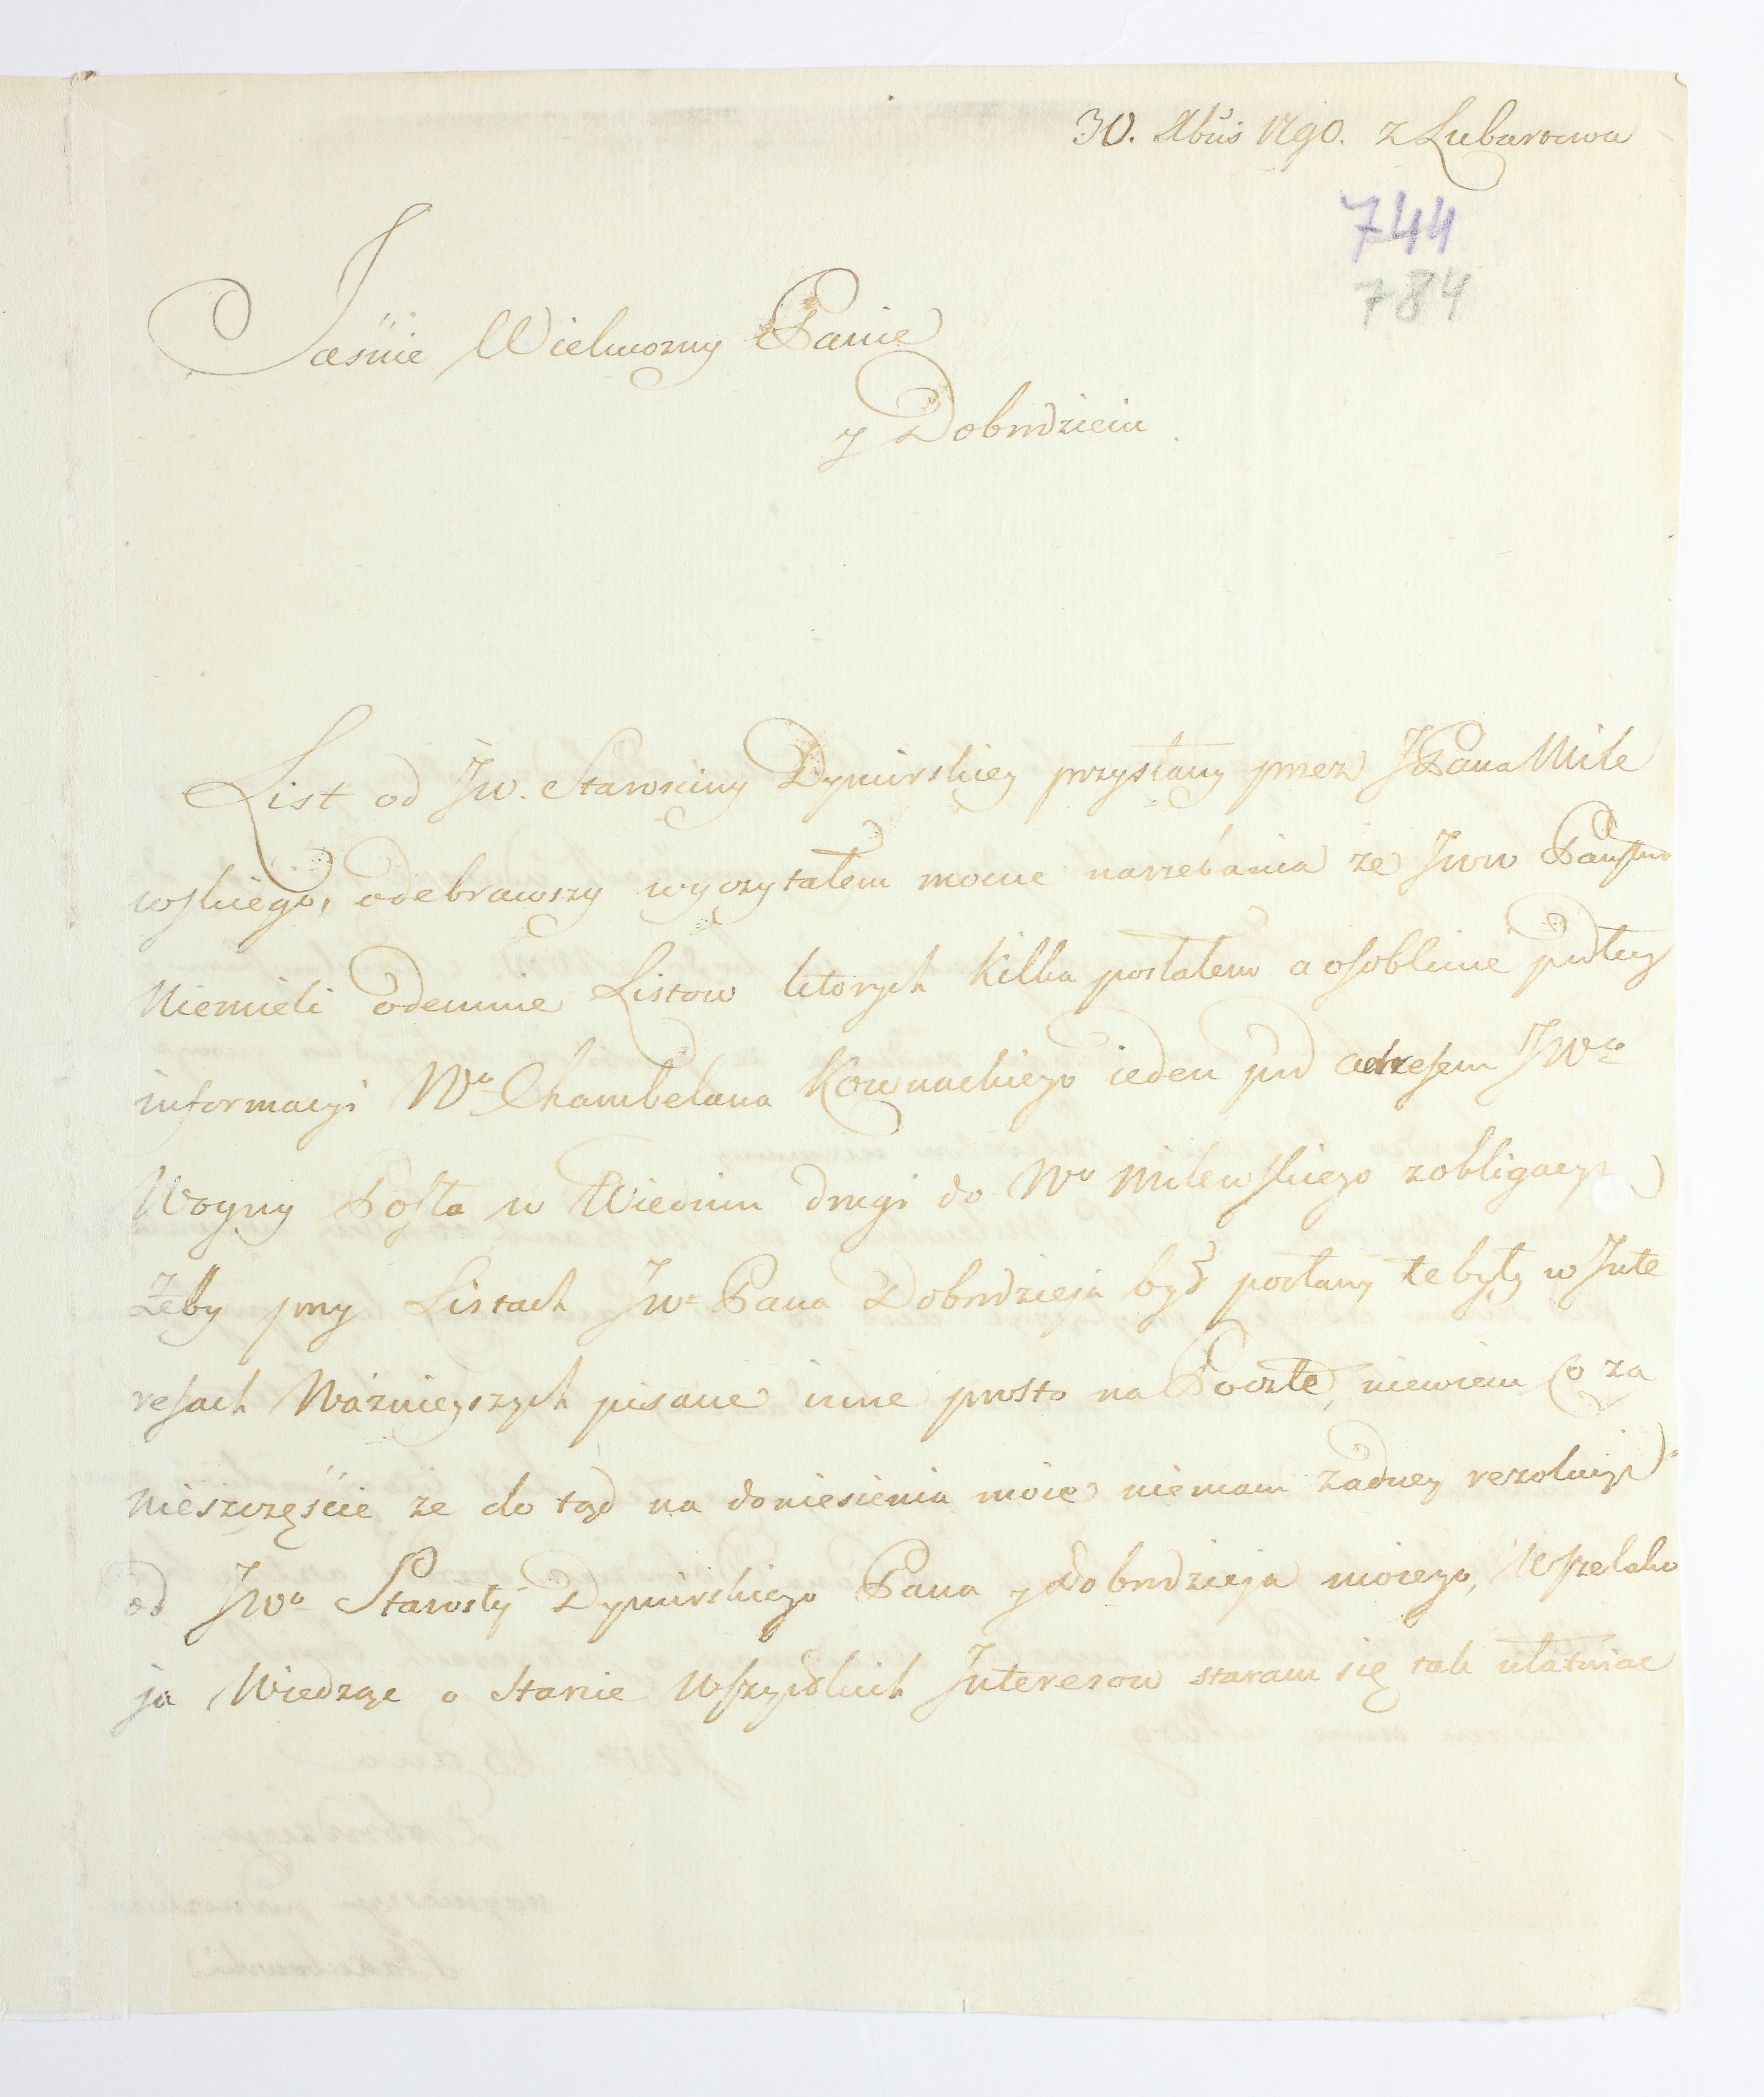 30. Xbris 1790. z Lubartowa
744
784
Jaśnie Wielmozny Panie
y Dobrodzieiu
List od Jw. Starościny Dymirskiey przysłany przez JPana Mile
wskiego, odebrawszy wyczytałem mocne narzekania że Jww Państwo
Niemieli odemnie Listow ktorych kilka posłałem a osobliwie podług
informacyi Wo Chambelana Kownackiego ieden pod adresem JWo
Woyny Posła w Wiedniu drugi do Wo Milewskiego z obligacyą
Żeby przy Listach Jwo Pana Dobrodzieja był posłany te były w Inte
resach Ważnieyszych pisane inne prosto na Pocztę, niewiem co za
nieszczęście że do tąd na doniesienia moie niemam żadney rezolucyi
od JWo Starosty Dymirskiego Pana y Dobrodzieja moiego, Wszelako
ja Wiedząc o Stanie Wszystkich Interesow staram się tak ułatwiac